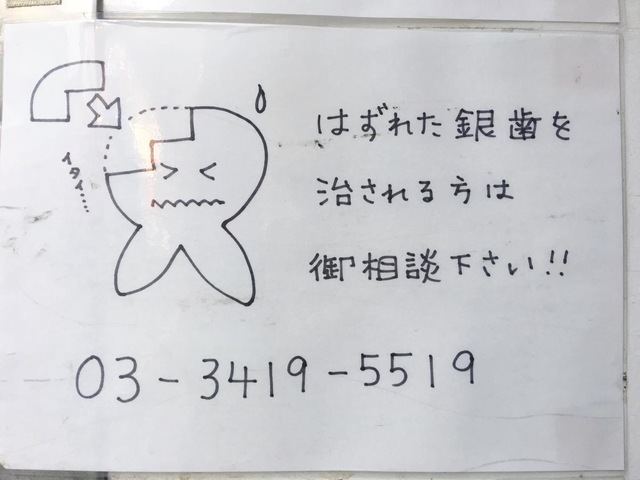 イタイ……
はずれた銀歯を
治される方は
御相談下さい!!
03-3419-5519